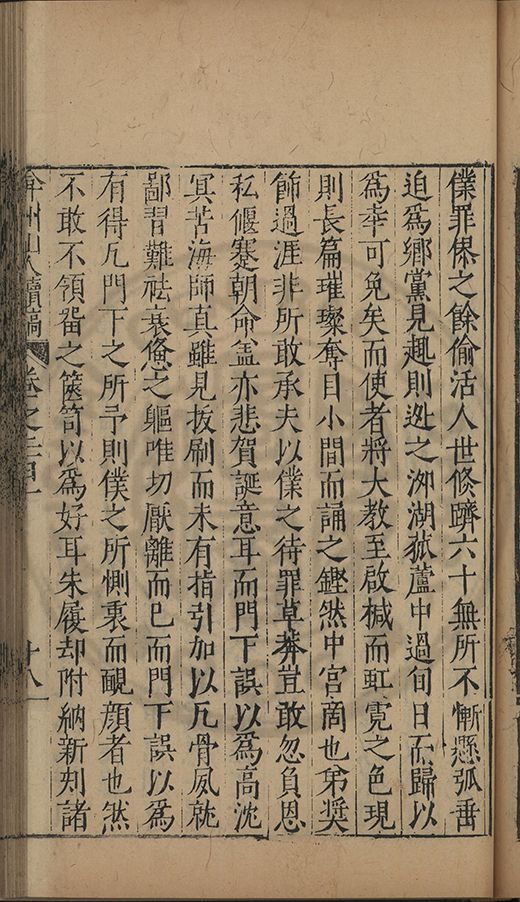 僕罪倸之餘偷活人世倏躋六十無所不慚懸弧垂
迫爲鄉黨見趣則逃之泖湖菰蘆中過旬日而歸以
爲幸可免矣而使者將大教至啟椷而虹霓之色現
則長篇璀璨奪目小間而誦之鏗然中宮商也弟奬
飾過涯非所敢承夫以僕之待罪草莽豈敢忽負恩
私偃蹇朝命盖亦悲賀誕意耳而門下誤以爲高沈
冥苦海師真雖見抜刷而未有指引加以凡骨夙就
鄙習難袪衰憊之軀唯切厭離而已而門下誤以爲
有得凢門下之所予則僕之所惻裏而靦顏者也然
不敢不領畱之篋笥以爲好耳朱履却附納新刻諸
弇州山人續稿 卷之二百一 十八